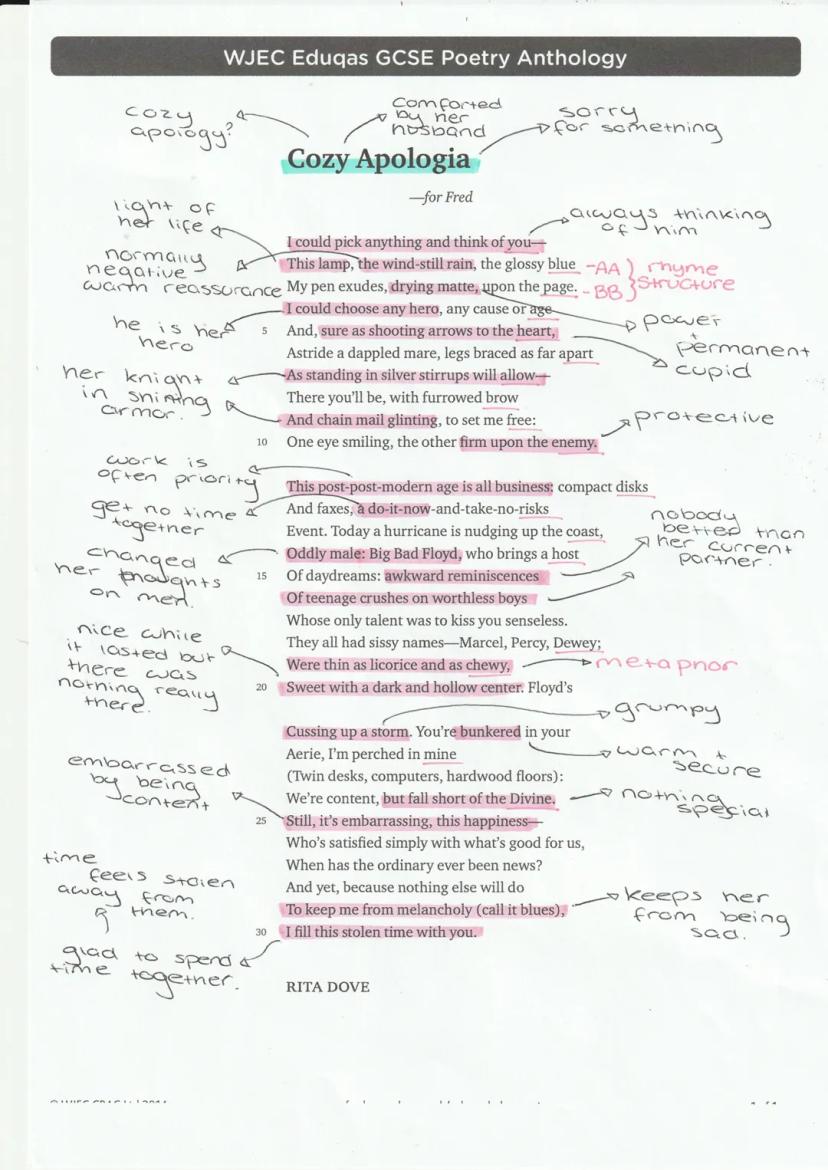 WJEC Eduqas GCSE Poetry Anthology
cozy
apology?
Comforted
by her
husband
sorry
for something
Cozy Apologia
—for Fred
light of
her life
always thinking
of him
normally
negative
warm reassurance
I could pick anything and think of you—
This lamp, the wind-still rain, the glossy blue
-AA
My pen exudes, drying matte, upon the page.
-BB
rhyme
structure
I could choose any hero, any cause or age
he is her
hero
power
+
permanent
5
And, sure as shooting arrows to the heart,
Astride a dappled mare, legs braced as far apart
cupid
her knight
in shining
armor.
As standing in silver stirrups will allow—
There you'll be, with furrowed brow
And chain mail glinting, to set me free:
protective
10
One eye smiling, the other firm upon the enemy.
work is
often priority
get no time
together
This post-post-modern age is all business: compact disks
And faxes, a do-it-now-and-take-no-risks
Event. Today a hurricane is nudging up the coast,
nobody
better than
her current
partner.
changed
her thoughts
on men.
Oddly male: Big Bad Floyd, who brings a host
15
Of daydreams: awkward reminiscences
Of teenage crushes on worthless boys
Whose only talent was to kiss you senseless.
nice while
it lasted but
there was
nothing really
there.
They all had sissy names—Marcel, Percy, Dewey;
Were thin as licorice and as chewy,
metaphor
20
Sweet with a dark and hollow center. Floyd's
grumpy
Cussing up a storm. You're bunkered in your
Aerie, I'm perched in mine
warm +
secure
embarrassed
by being
content
(Twin desks, computers, hardwood floors):
We're content, but fall short of the Divine.
nothing
special
25
Still, it's embarrassing, this happiness—
Who's satisfied simply with what's good for us,
When has the ordinary ever been news?
time
feels stolen
away from
them.
And yet, because nothing else will do
To keep me from melancholy (call it blues),
keeps her
from being
sad.
30
I fill this stolen time with you.
glad to spend
time together.
RITA DOVE